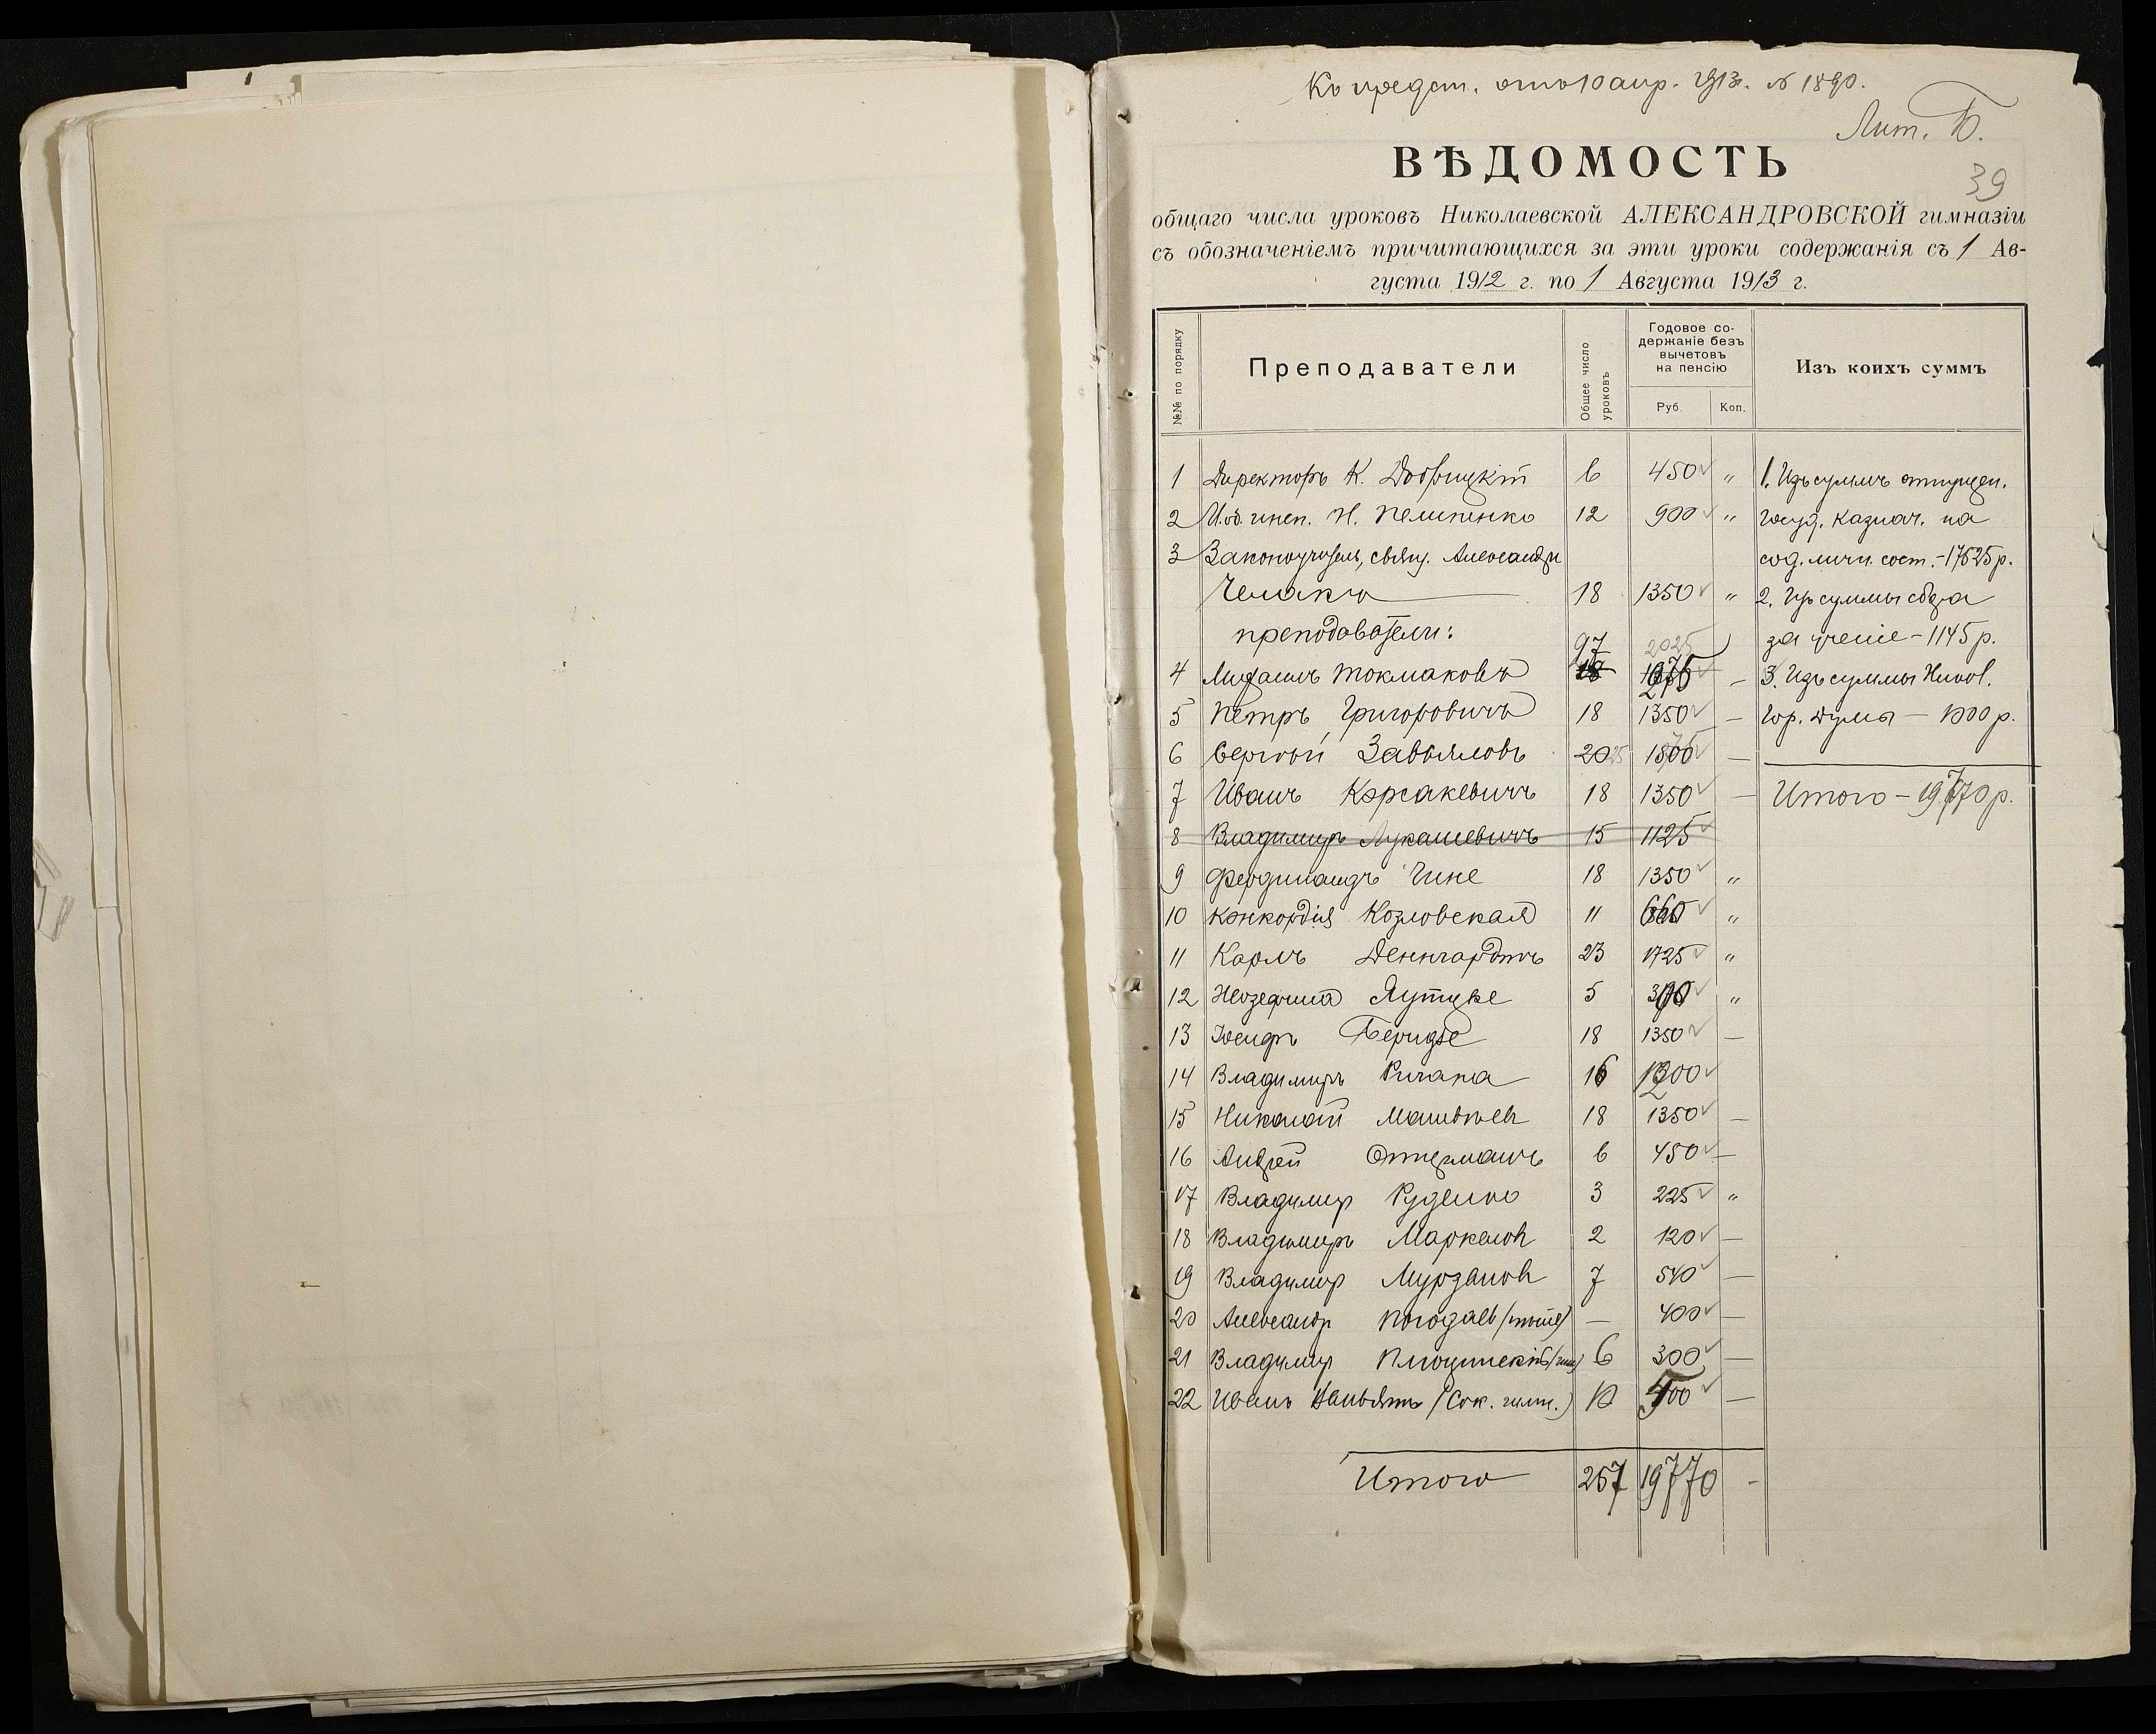 Къ предст. отъ 10 апр. 1913 г. № 1890.
Лит. Б.
39
ВѢДОМОСТЬ
общаго числа уроковъ Николаевской АЛЕКСАНДРОВСКОЙ гимназіи
съ обозначеніемъ причитающихся за эти уроки содержанія съ 1 Ав-
густа 1912 г. по 1 Августа 1913 г.
№№ по порядку
Преподаватели
Общее число уроковъ
Годовое со-
держаніе безъ
вычетовъ
на пенсію
Руб. Коп.
Изъ коихъ суммъ
1 Директоръ К. Добрицкій 6 450 "
2 И.об. инсп. Н. Пелипенко 12 900 "
3 Законоучитель, свящ. Александръ
18 1350 "
преподаватели:
97 2025
4 Михаилъ Токмаковъ 18
5 Петръ Григоровичъ 18 1350 —
6 Сергѣй Завьяловъ 20 —
7 Иванъ Корсакевичъ 18 1350 —
8 Владимиръ Лукашевичъ 15 1125
9 Фердинандъ Чипе 18 1350 "
10 Конкордія Козловская 11 660 "
11 Карлъ Деннгардтъ 23 1725 "
12 5 "
13 Іосифъ Беридзе 18 1350 —
14 Владимиръ 16 1200
15 Николай Матвѣевъ 18 1350 —
16 Андрей 6 450 —
17 Владимир Руденко 3 225 "
18 Владимиръ Маркеловъ 2 120 —
19 Владимир Мурзановъ 7 540 —
20 Александр — 400 —
21 Владимир 6 300 —
22 Иванъ (Сок. гимн.) 10 500 —
Итого 257 19770 -
1. Изъ суммъ отпущен.
Госуд. Казнач. на
сод. личн. сост. - 17625 р.
2. Изъ суммы сбора
за ученіе - 1145 р.
3. Изъ суммы Никол.
Гор. Думы — 1000 р.
Итого - 19770 р.